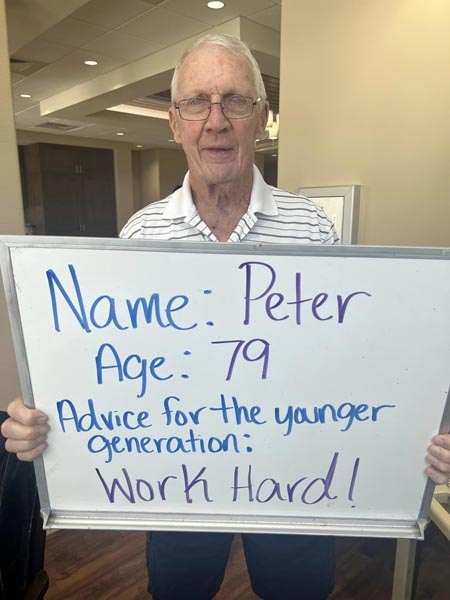 Name: Peter
Age: 79
Advice for the younger
generation:
Work Hard!